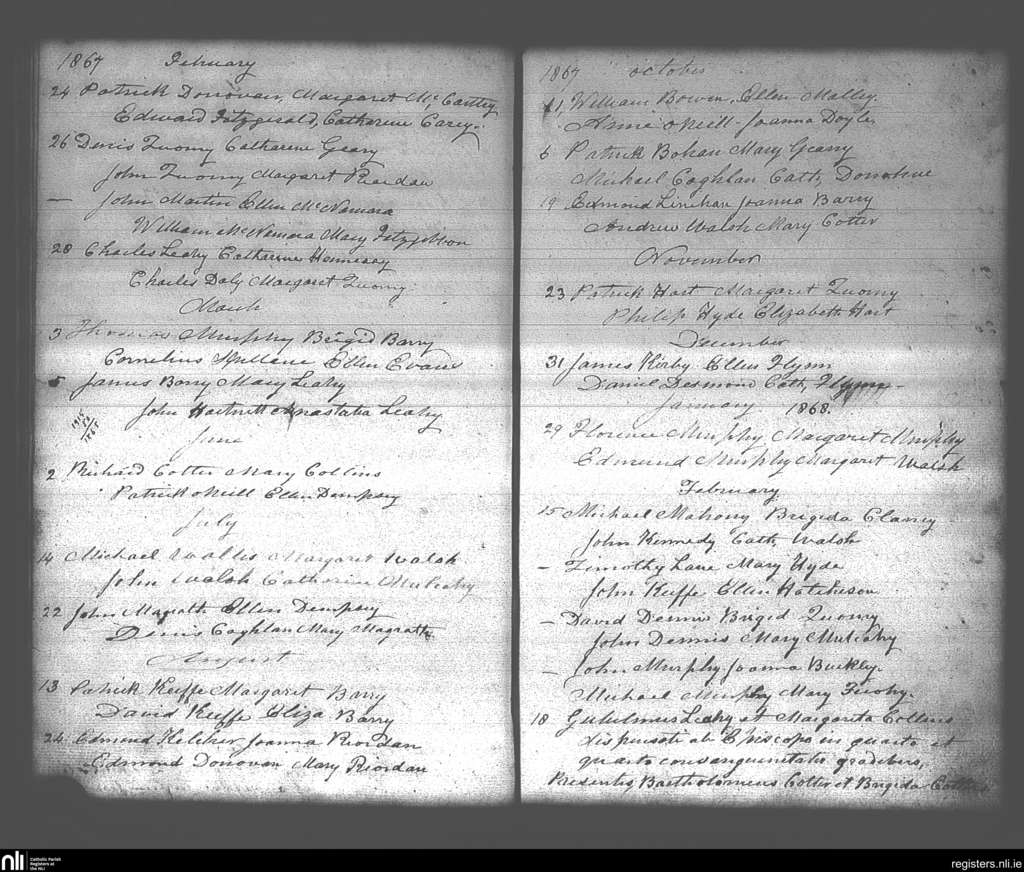 1867 February
24 Patrick Donovan, Margaret McCarthy
Edward Fitzgerald, Catharine Carey.
26 Denis Twomy Catharine Geary
John Twomy Margaret Riordan
— John Martin Ellen McNamara
William McNamara Mary Fitzgibbon
28 Charles Leahy Catharine Hennessy
Charles Daly Margaret Twomy
March
3 Thomas Murphy Brigid Barry
Cornelius Ellen Evans
5 James Barry Mary Leahy
John Hartnett Anastatia Leahy
June
2 Richard Cotter Mary Collins
Patrick ONeill Ellen Dempsey
July
14 Michael Wallis Margaret Walsh
John Walsh Catherine Mulcahy
22 John Magrath Ellen Dempsey
Denis Coghlan Mary Magrath
August
13 Patrick Keiffe Margaret Barry
David Keiffe Eliza Barry
24 Edmund Keliher Joanna Riordan
Edmond Donovan Mary Riordan
1867 October
1, William Bowen, Ellen Malley.
Anne ONeill - Joanna Doyle
6 Patrick Bohan Mary Geary
Michael Coghlan Cath, Donohue
19 Edmond Linehan Joanna Barry
Andrew Walsh Mary Cotter
November
23 Patrick Hart Margaret Twomy
Philip Hyde Elizabeth Hart
December
31 James Kirby Ellen Flynn
Daniel Desmond Cath, Flynn -
January 1868.
29 Florence Murphy Margaret Murphy
Edmund Murphy Margaret Walsh
February
15 Michael Mahony Brigida Clancy
John Kennedy Cath, Walsh
— Timothy Lane Mary Hyde
John Keiffe Ellen Hotcheson
— David Dennis Brigid Twomy
John Dennis Mary Mulcahy
— John Murphy Joanna Buckley.
Michael Murphy Mary Tuohy.
18 Gulielmus Leahy et Margarita Collins
dispensati ab Episcopo in quarto et
quarto consanguinitatis gradibus,
Presentes Bartholomeus Cotter et Brigida Cotter
nli Catholic Parish
Registers at
the NLI
registers.nli.ie